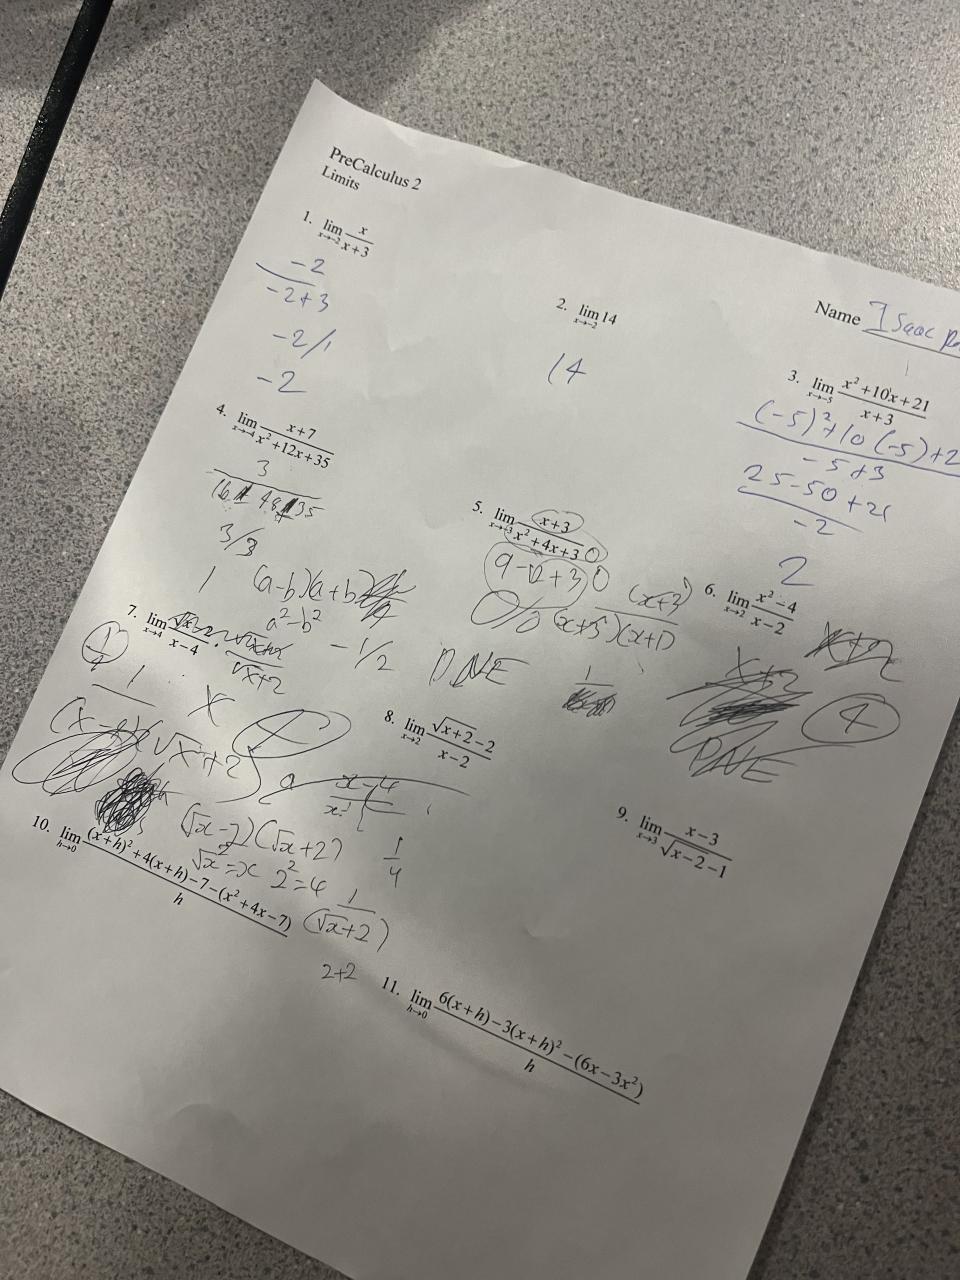 PreCalculus 2
Limits
Name Isaac
1. lim x→-2 x/(x+3)
-2
-2+3
-2/1
-2
2. lim x→-2 14
14
3. lim x→-5 (x²+10x+21)/(x+3)
(-5)²+10(-5)+2
-5+3
25-50+21
-2
2
4. lim x→-4 (x+7)/(x²+12x+35)
3
16 - 48 + 35
3/3
1
5. lim x→-3 (x+3)/(x²+4x+3)
0
9-12+3 0
0/0
(x+3)
(x+3)(x+1)
-1/2
DNE
1
6. lim x→2 (x²-4)/(x-2)
x+2
x+2
DNE
4
(a-b)(a+b)
a²-b²
7. lim x→4 (√x-2)/(x-4) · (√x+2)/(√x+2)
1/4
1
(x-4)(√x+2)
x-4
(√x-2)(√x+2)
√x²=x 2²=4
1
4
1
(√x+2)
2+2
8. lim x→2 (√(x+2)-2)/(x-2)
9. lim x→3 (x-3)/(√(x-2)-1)
10. lim h→0 ((x+h)²+4(x+h)-7-(x²+4x-7))/h
11. lim h→0 (6(x+h)-3(x+h)²-(6x-3x²))/h